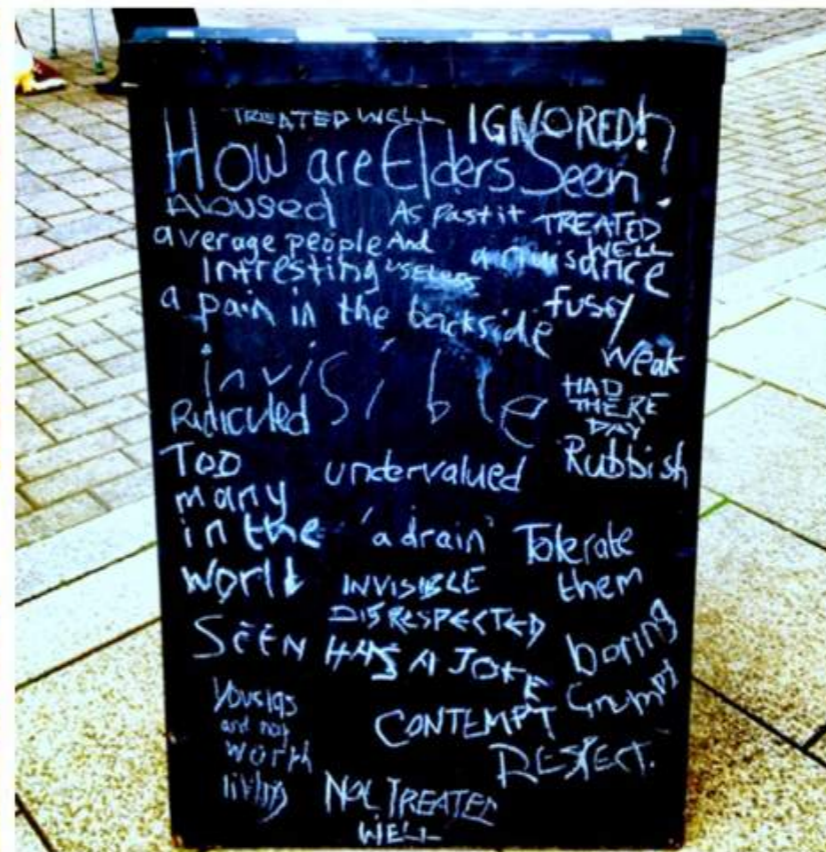 TREATED WELL IGNORED!
How are Elders Seen?
Abused
As Past it
TREATED WELL
average people And
Intresting
USELESS
a nuisance
a pain in the backside
fussy
Weak
invisible
HAD
THERE
DAY
Ridiculed
Rubbish
Too
many
in the
World
undervalued
'a drain'
Tolerate
them
INVISIBLE
DISRESPECTED
SEEN HAS A JOKE
boring
Grumpy
CONTEMPT
RESPECT.
and not
worth
living
NOT TREATED
WELL